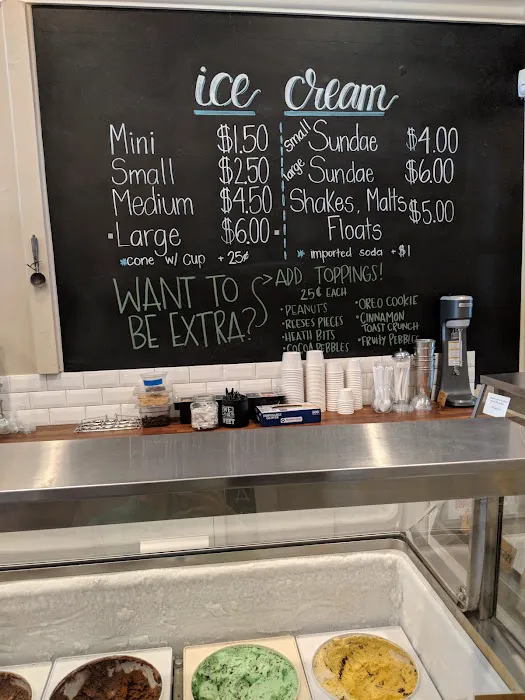 ice cream
Mini $1.50
Small $2.50
Medium $4.50
Large $6.00
*cone w/ cup + 25¢
Small Sundae $4.00
Large Sundae $6.00
Shakes, Malts, $5.00
Floats
* imported soda + $1
WANT TO
BE EXTRA?
ADD TOPPINGS!
25¢ EACH
• PEANUTS
• REESES PIECES
• HEATH BITS
• COCOA PEBBLES
• OREO COOKIE
• CINNAMON
TOAST CRUNCH
• FRUITY PEBBLES